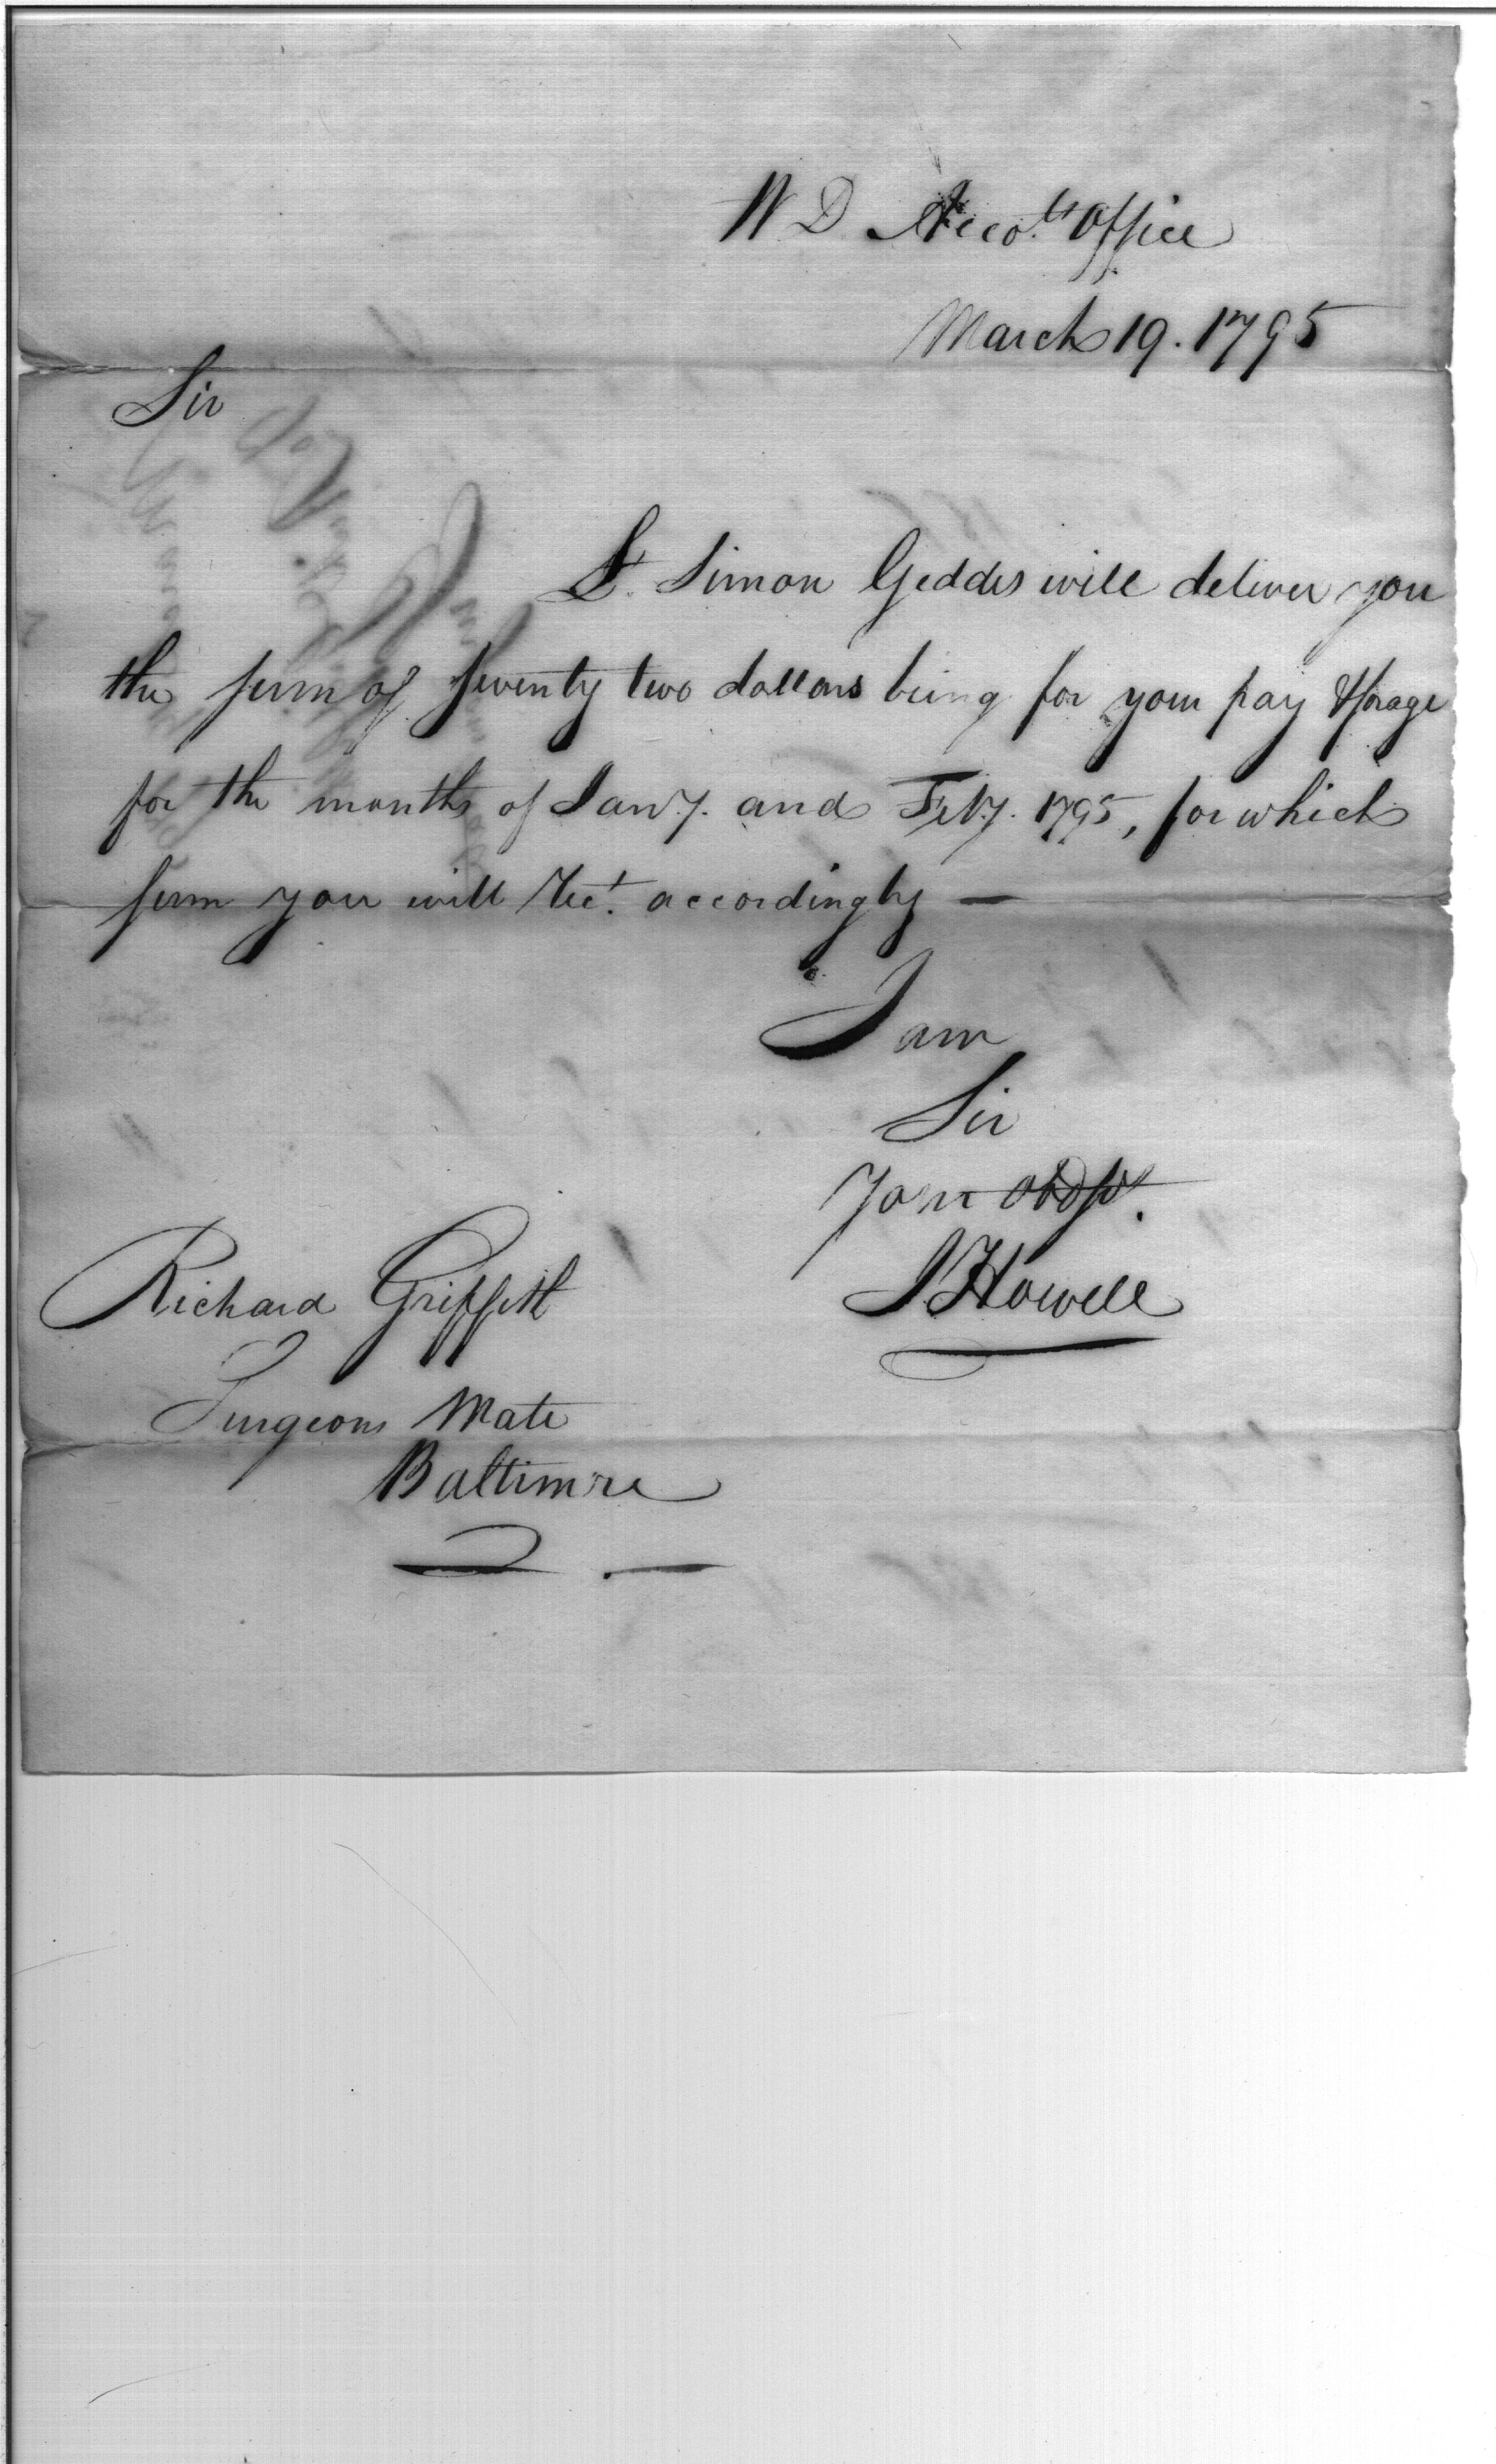 W D Accots. Office
March 19. 1795
Sir
Lt. Simon Geddes will deliver you
the sum of seventy two dollars being for your pay & forage
for the months of Jany. and Feby. 1795, for which
sum you will rect. accordingly —
I am
Sir
Your obdst.
J Howell
Richard Griffith
Surgeons Mate
Baltimore